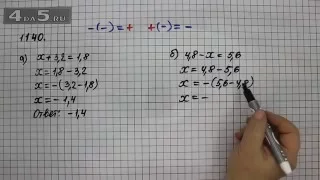 4DA5.RU
-(-) = + +(-) = -
1140.
а) x + 3,2 = 1,8
x = 1,8 - 3,2
x = -(3,2 - 1,8)
x = - 1,4
Ответ: -1,4
б) 4,8 - x = 5,6
x = 4,8 - 5,6
x = -(5,6 - 4,8)
x = -